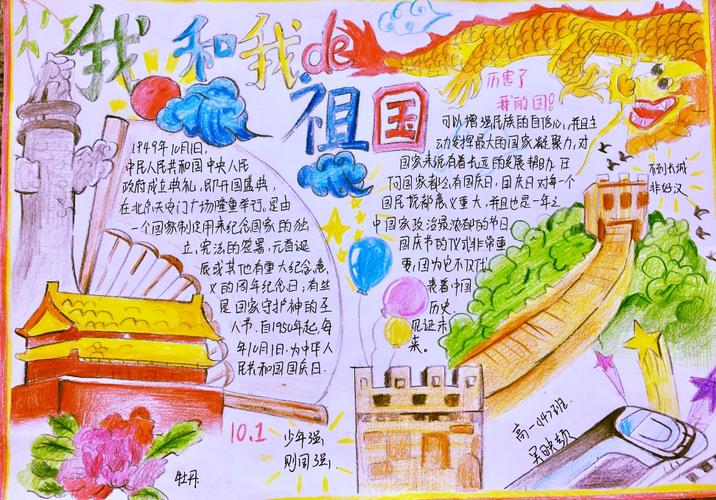 我和我de
祖国
1949年10月1日,
中民人民共和国中央人民
政府成立典礼,即开国盛典,
在北京天安门广场隆重举行。是由
一个国家制定用来纪念国家的独
立、宪法的签署、元首诞
辰或其他有重大纪念意
义的周年纪念日;有些
是国家守护神的圣
人节。自1950年起,每
年10月1日,为中华人
民共和国国庆日.
厉害了
我的国!
可以增强民族的自信心,并且主
动发挥最大的国家凝聚力,对
国家来说有着长远的发展帮助。任
何国家都会有国庆日,国庆日对每一个
国民族都意义重大,并且也是一年之
中国家政治最浓郁的节日
国庆节的仪式非常重
要,因为它不仅代
表着中国
历史,
见证未
来。
不到长城
非好汉
10.1
少年强,
则国强,
牡丹
高一147班.